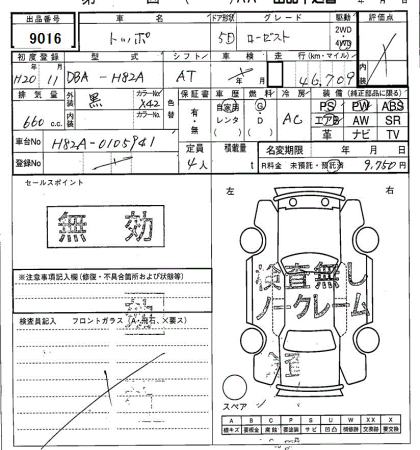 出品番号 車名 ドア形状 グレード 駆動 評価点
9016 トッポ 5D ローゼスト 2WD・4WD
初度登録 型式 シフト 車検 走行(km・マイル)
H20年 11月 DBA-H82A AT 年 月 46,709
排気量 外装 黒 カラーNo. X42 色替 保証書 車歴 燃料 冷房 装備(純正部品に限る)
660 c.c. 内装 カラーNo. 有・無 自家用 レンタ G・D AC PS PW ABS
エアB AW SR
革 ナビ TV
車台No H82A-0105941 定員 積載量 名変期限 年 月 日
登録No 4人 t R料金 未預託・預託済 9,750円
セールスポイント 左 右
無効
※注意事項記入欄(修復・不具合箇所および状態等)
検査無し
ノークレーム
検査員記入 フロントガラス(A・飛石、×要ス)
スペア
A B C P S U W XX X
線キズ 要板金 腐蝕 要塗装 サビ 凹凸 補修跡 交換跡 要交換